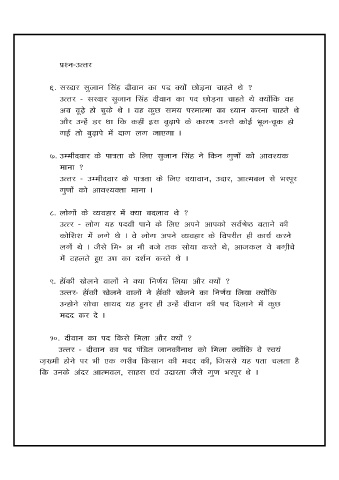 प्रश्न-उत्तर
६. सरदार सुजान सिंह दीवान का पद क्यों छोड़ना चाहते थे ?
उत्तर - सरदार सुजान सिंह दीवान का पद छोड़ना चाहते थे क्योंकि वह
अब वूढ़े हो चुके थे । वह कुछ समय परमात्मा का ध्यान करना चाहते थे
और उन्हें डर था कि कहीं इस बुढ़ापे के कारण उनसे कोई भूल-चूक हो
गई तो बुढ़ापे में दाग लग जाएगा ।
७. उम्मीदवार के पात्रता के लिए सुजान सिंह ने किन गुणों को आवश्यक
माना ?
उत्तर - उम्मीदवार के पात्रता के लिए दयावान, उदार, आत्मबल से भरपूर
गुणों को आवश्यक्ता माना ।
८. लोगों के व्यवहार में क्या बदलाव थे ?
उत्तर - लोग यह पदवी पाने के लिए अपने आपको सर्वश्रेष्ठ बताने की
कोशिश में लगे थे । वे लोग अपने व्यवहार के विपरीत ही कार्य करने
लगे थे । जैसे मि॰ अ नौ बजे तक सोया करते थे, आजकल वे बगीचे
में टहलते हुए उषा का दर्शन करते थे ।
९. हॉकी खेलने वालों ने क्या निर्णय लिया और क्यों ?
उत्तर- हॉकी खेलने वालों ने हॉकी खेलने का निर्णय लिया क्योंकि
उन्होने सोचा शायद यह हुनर ही उन्हें दीवान की पद दिलाने में कुछ
मदद कर दे ।
१०. दीवान का पद किसे मिला और क्यों ?
उत्तर - दीवान का पद पंडित जानकीनाथ को मिला क्योंकि वे स्वयं
जख़्मी होने पर भी एक गरीब किसान की मदद की, जिससे यह पता चलता है
कि उनके अंदर आत्मवल, साहस एवं उदारता जैसे गुण भरपुर थे ।